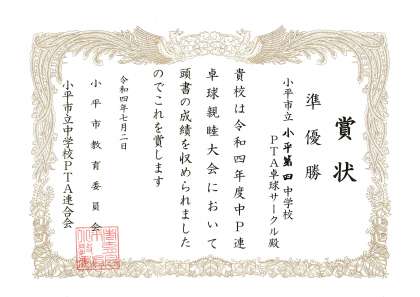 賞状
準優勝
小平市立小平第四中学校
PTA卓球サークル殿
貴校は令和四年度中P連
卓球親睦大会において
頭書の成績を収められました
のでこれを賞します
令和四年七月二日
小平市教育委員会
小平市立中学校PTA連合会